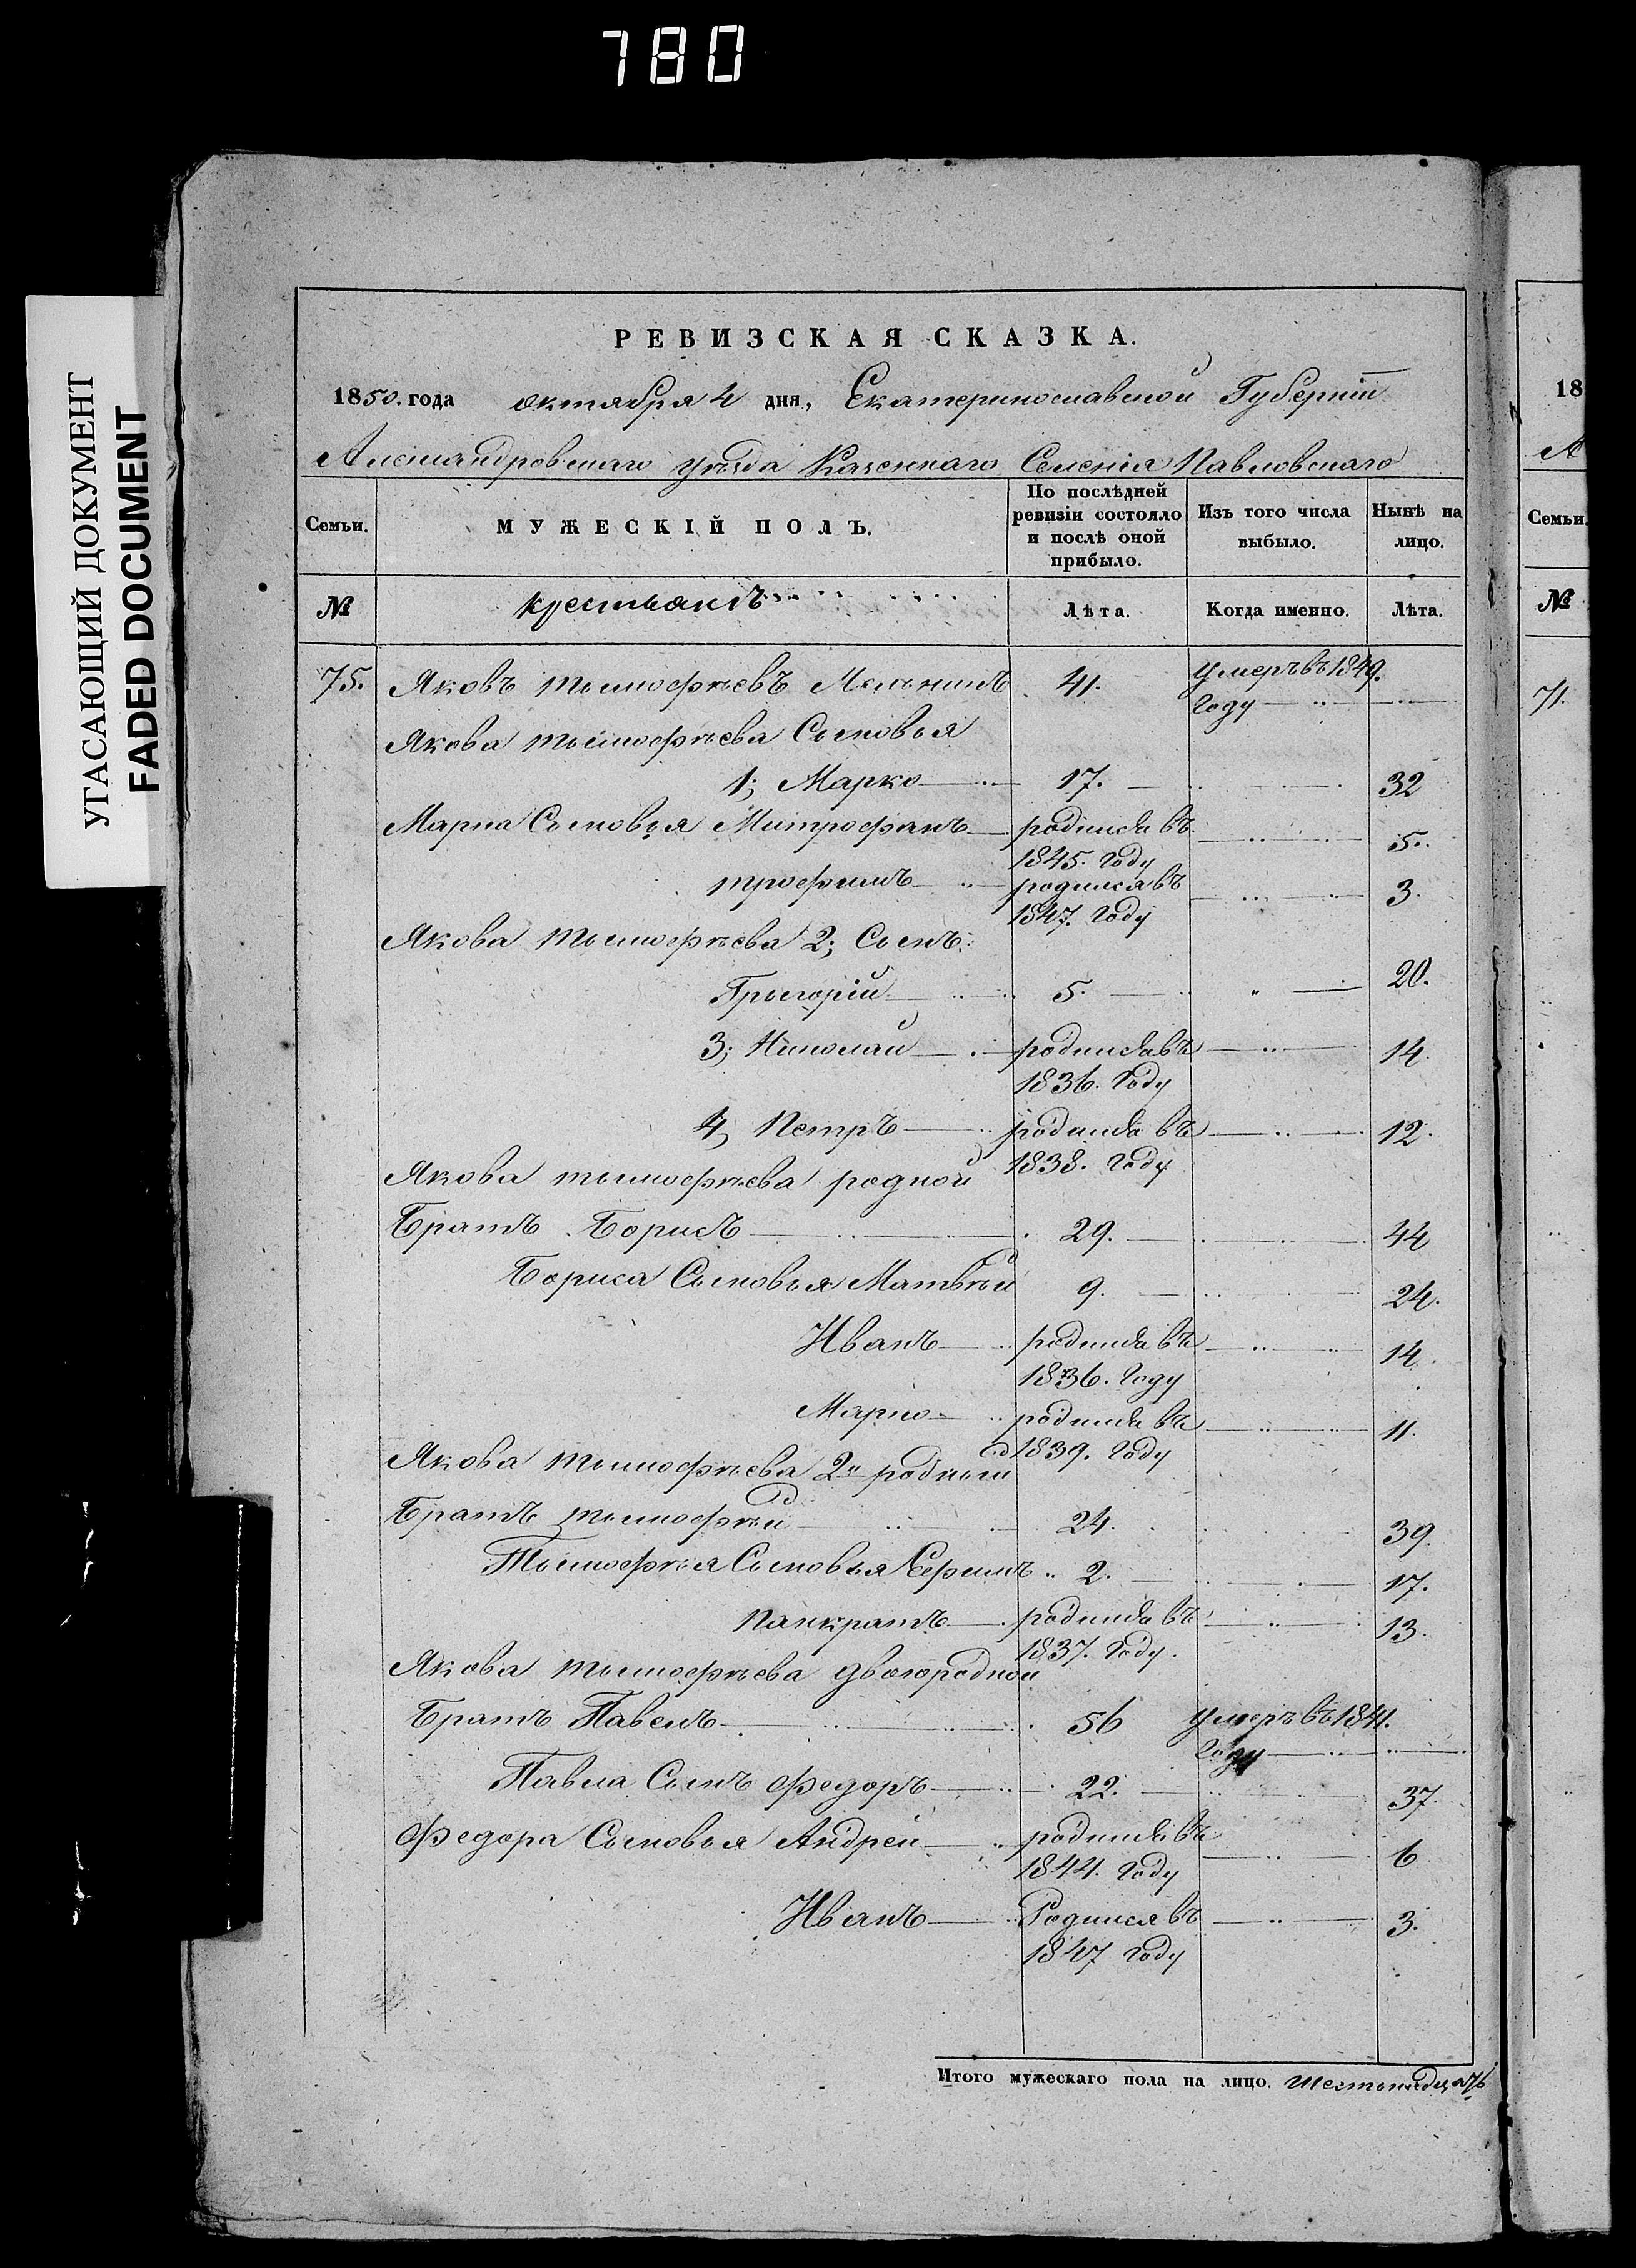 780
УГАСАЮЩИЙ ДОКУМЕНТ
FADED DOCUMENT
РЕВИЗСКАЯ СКАЗКА.
1850. года октября 4 дня, Екатеринославской Губерніи
Александровскаго уѣзда Казеннаго Селенія Павловскаго
Семьи. МУЖЕСКІЙ ПОЛЪ. По послѣдней ревизіи состояло и послѣ оной прибыло. Изъ того числа выбыло. Нынѣ на лицо.
№ крестьянъ Лѣта. Когда именно. Лѣта.
75. Яковъ тымофѣевъ Мельникъ 41. умеръ въ 1849.
году
Якова тымофѣева Сыновья
1; Марко 17. 32
Марка Сыновья Митрофанъ родился въ 5.
1845. году
трофимъ родился въ 3.
1847. году
Якова тымофѣева 2; Сынъ
Грыгорій 5. 20.
3; Николай родился въ 14
1836. году
4; Петръ родился въ 12.
1838. году
Якова тымофѣева родной
Братъ Борисъ 29. 44
Бориса Сыновья Матвѣй 9. 24.
Иванъ родился въ 14.
1836. году
Марко родился въ 11.
1839. году
Якова тымофѣева 2й родный
Братъ тымофѣй 24. 39.
Тымофѣя Сыновья Ефимъ 2. 17.
панкратъ родился въ 13.
1837. году.
Якова тымофѣева двоюродной
Братъ Павелъ 56 умеръ въ 1841.
году
Павла Сынъ Федоръ 22. 37.
Федора Сыновья Андрей родился въ 6
1844. году
Иванъ Родился въ 3.
1847 году
Итого мужескаго пола на лицо.
18
А
Семьи.
№
71.